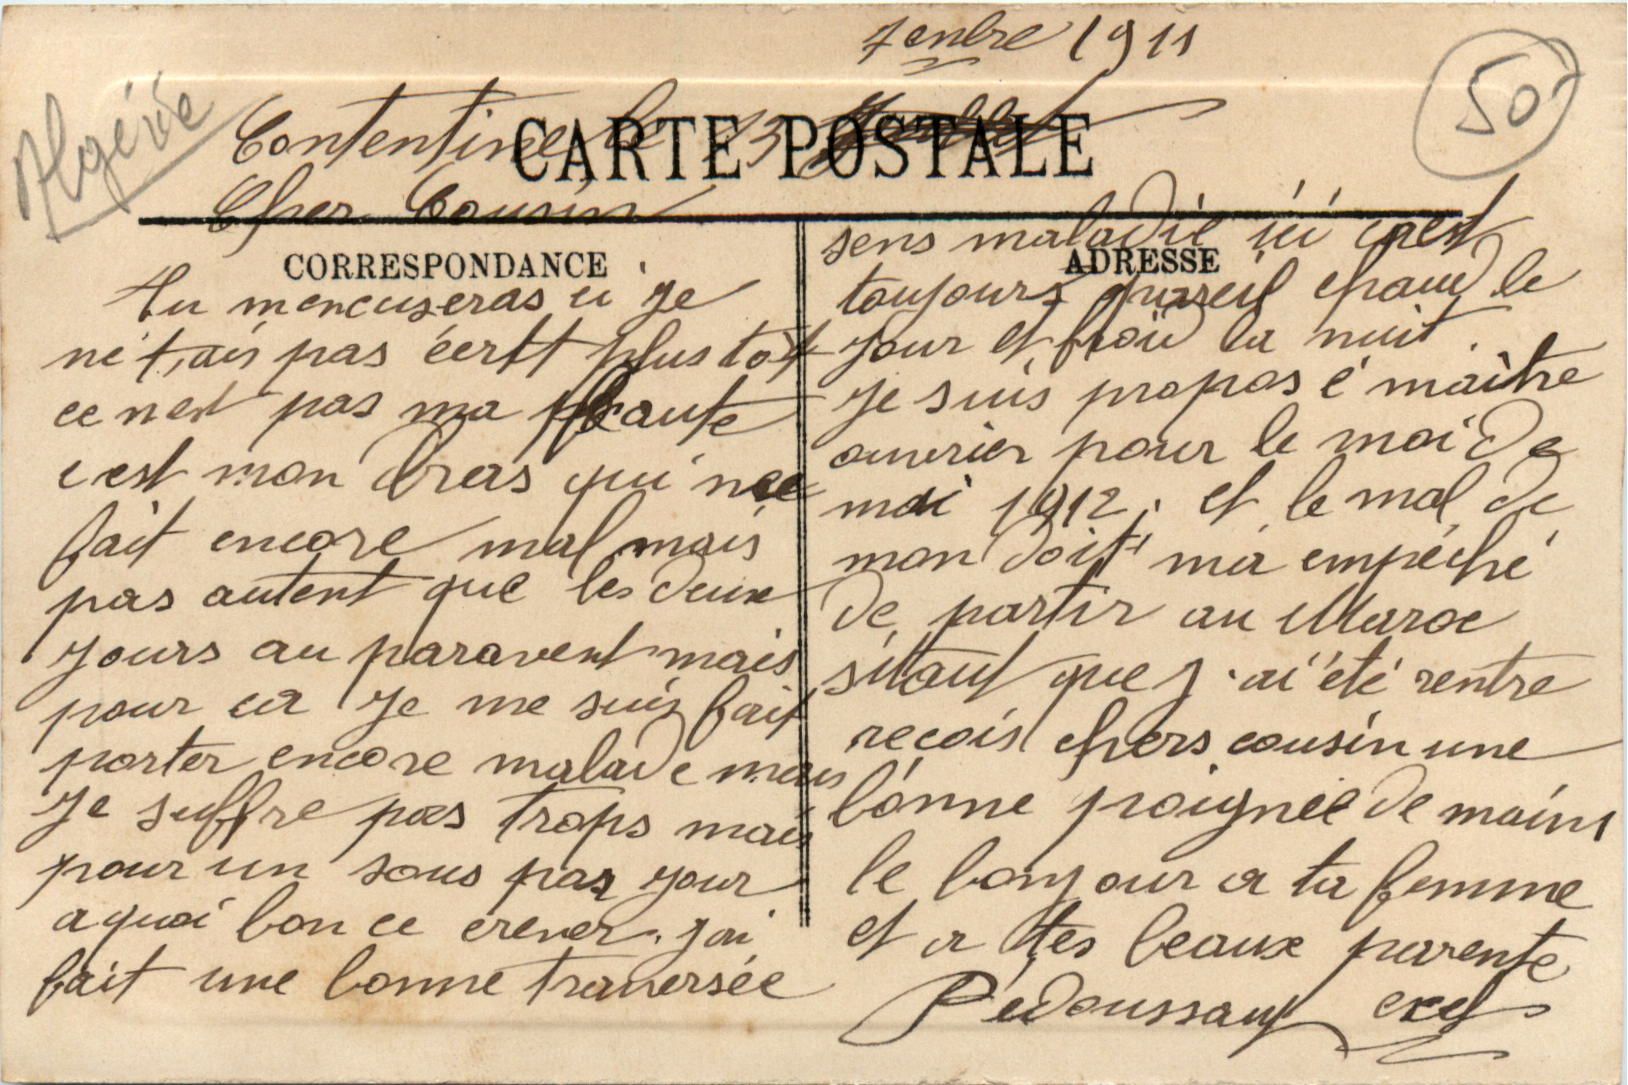 7enbre 1911
Algérie
50
Contentine le 13
CARTE POSTALE
Cher Cousin
CORRESPONDANCE
tu mencuseras si je
ne t,ais pas écrit plus tot
ce nest pas ma faute
cest mon bras qui me
fait encore mal mais
pas autent que les deux
jours au paravent mais
pour ca je me suis fait
porter encore malade mais
je suffre pas trops mais
pour un sous par jour
a quoi bon ce crever. jai
fait une bonne traversée
ADRESSE
sens maladie ici cest
toujours pareil chaud le
jour et froid la nuit.
je suis propos é maitre
ouvrier pour le moi de
mai 1912. et le mal de
mon doit ma empéché
de partir au Maroc
sitaut que j'ai été rentre
recois chers cousin une
bonne poignée de mains
le bonjour a ta femme
et a tes beaux parente
Pédoussaut